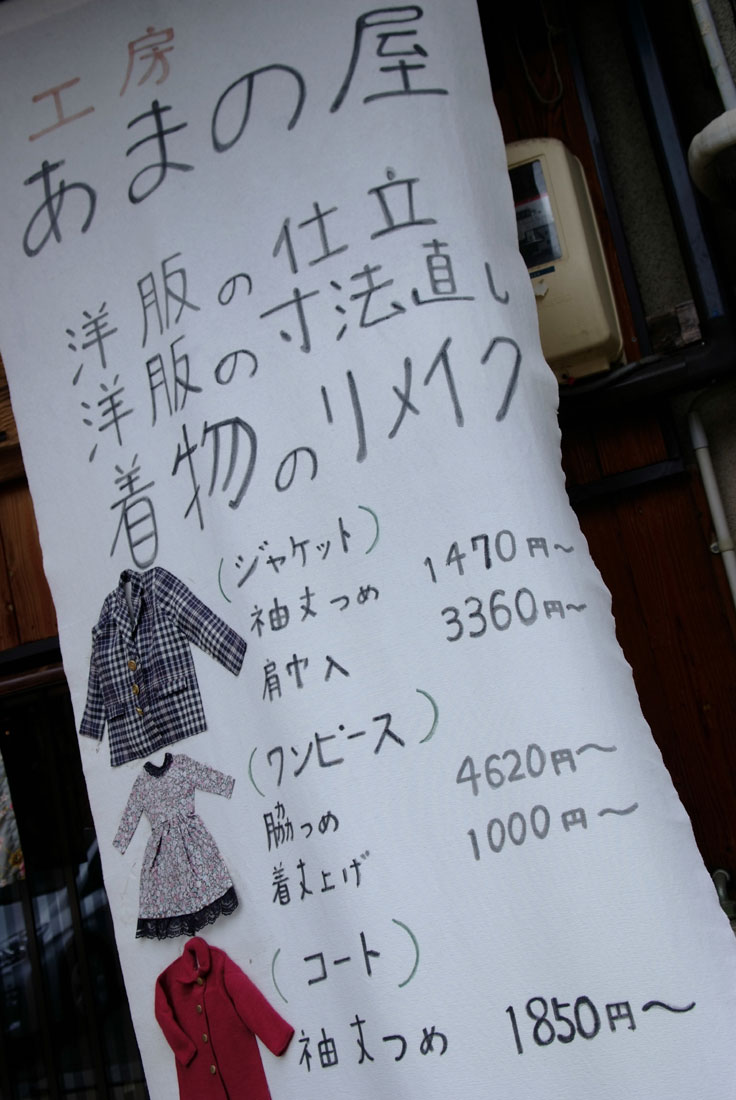 工房
あまの屋
洋服の仕立
洋服の寸法直し
着物のリメイク
(ジャケット)
袖丈つめ 1470円～
肩巾入 3360円～
(ワンピース)
脇つめ 4620円～
着丈上げ 1000円～
(コート)
袖丈つめ 1850円～